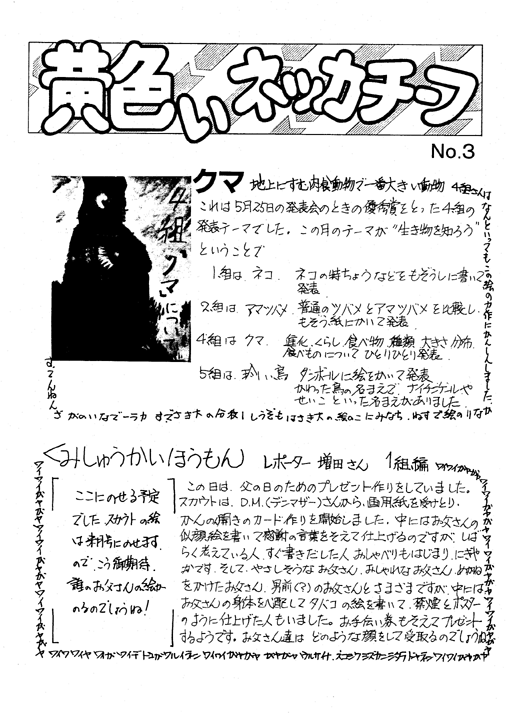 黄色いネッカチーフ
No.3
クマ 地上にすむ肉食動物で一番大きい動物
これは5月25日の発表会のときの優秀賞をとった4組の
発表テーマでした。この月のテーマが“生き物を知ろう”
ということで
1組は、ネコ． ネコの特ちょうなどをもぞうしに書いて
発表．
2組は アマツバメ． 普通のツバメとアマツバメを比較し
もぞう紙にかいて発表
4組は クマ． 進化、くらし、食べ物、種類、大きさ 分布．
食べものについて ひとりひとり発表．
5組は 珍しい鳥 ダンボールに絵をかいて発表
かわった鳥の名まえで、ナイチンゲールや
せいこ といった名まえがありました
4組 クマについて
4組さんは
なんといってもこの絵の力作にかんしんしました。
<みしゅうかいほうもん> レポーター 増田さん 1組編
ここにのせる予定
でした スカウトの絵
は来月号にのせます
ので、こう御期待．
誰のお父さんの絵が
のるのでしょうね！
この日は、父の日のためのプレゼント作りをしていました。
スカウトは、D.M.(デンマザー)さんから、画用紙を受けとり、
かんの開きのカード作りを開始しました。中にはお父さんの
似顔絵を書いて感謝の言葉をそえて仕上げるのですが、しば
らく考えている人、すぐ書きだした人 おしゃべりもはじまり、にぎや
かです。そして、やさしそうなお父さん、おしゃれなお父さん、めがね
をかけたお父さん、男前(?)のお父さんとさまざまですが、中には
お父さんの身体を心配してタバコの絵を書いて、禁煙とポスター
のように仕上げた人もいました。お手伝い券もそえてプレゼント
するようです。お父さん達は どのような顔をして受取るのでしょうね